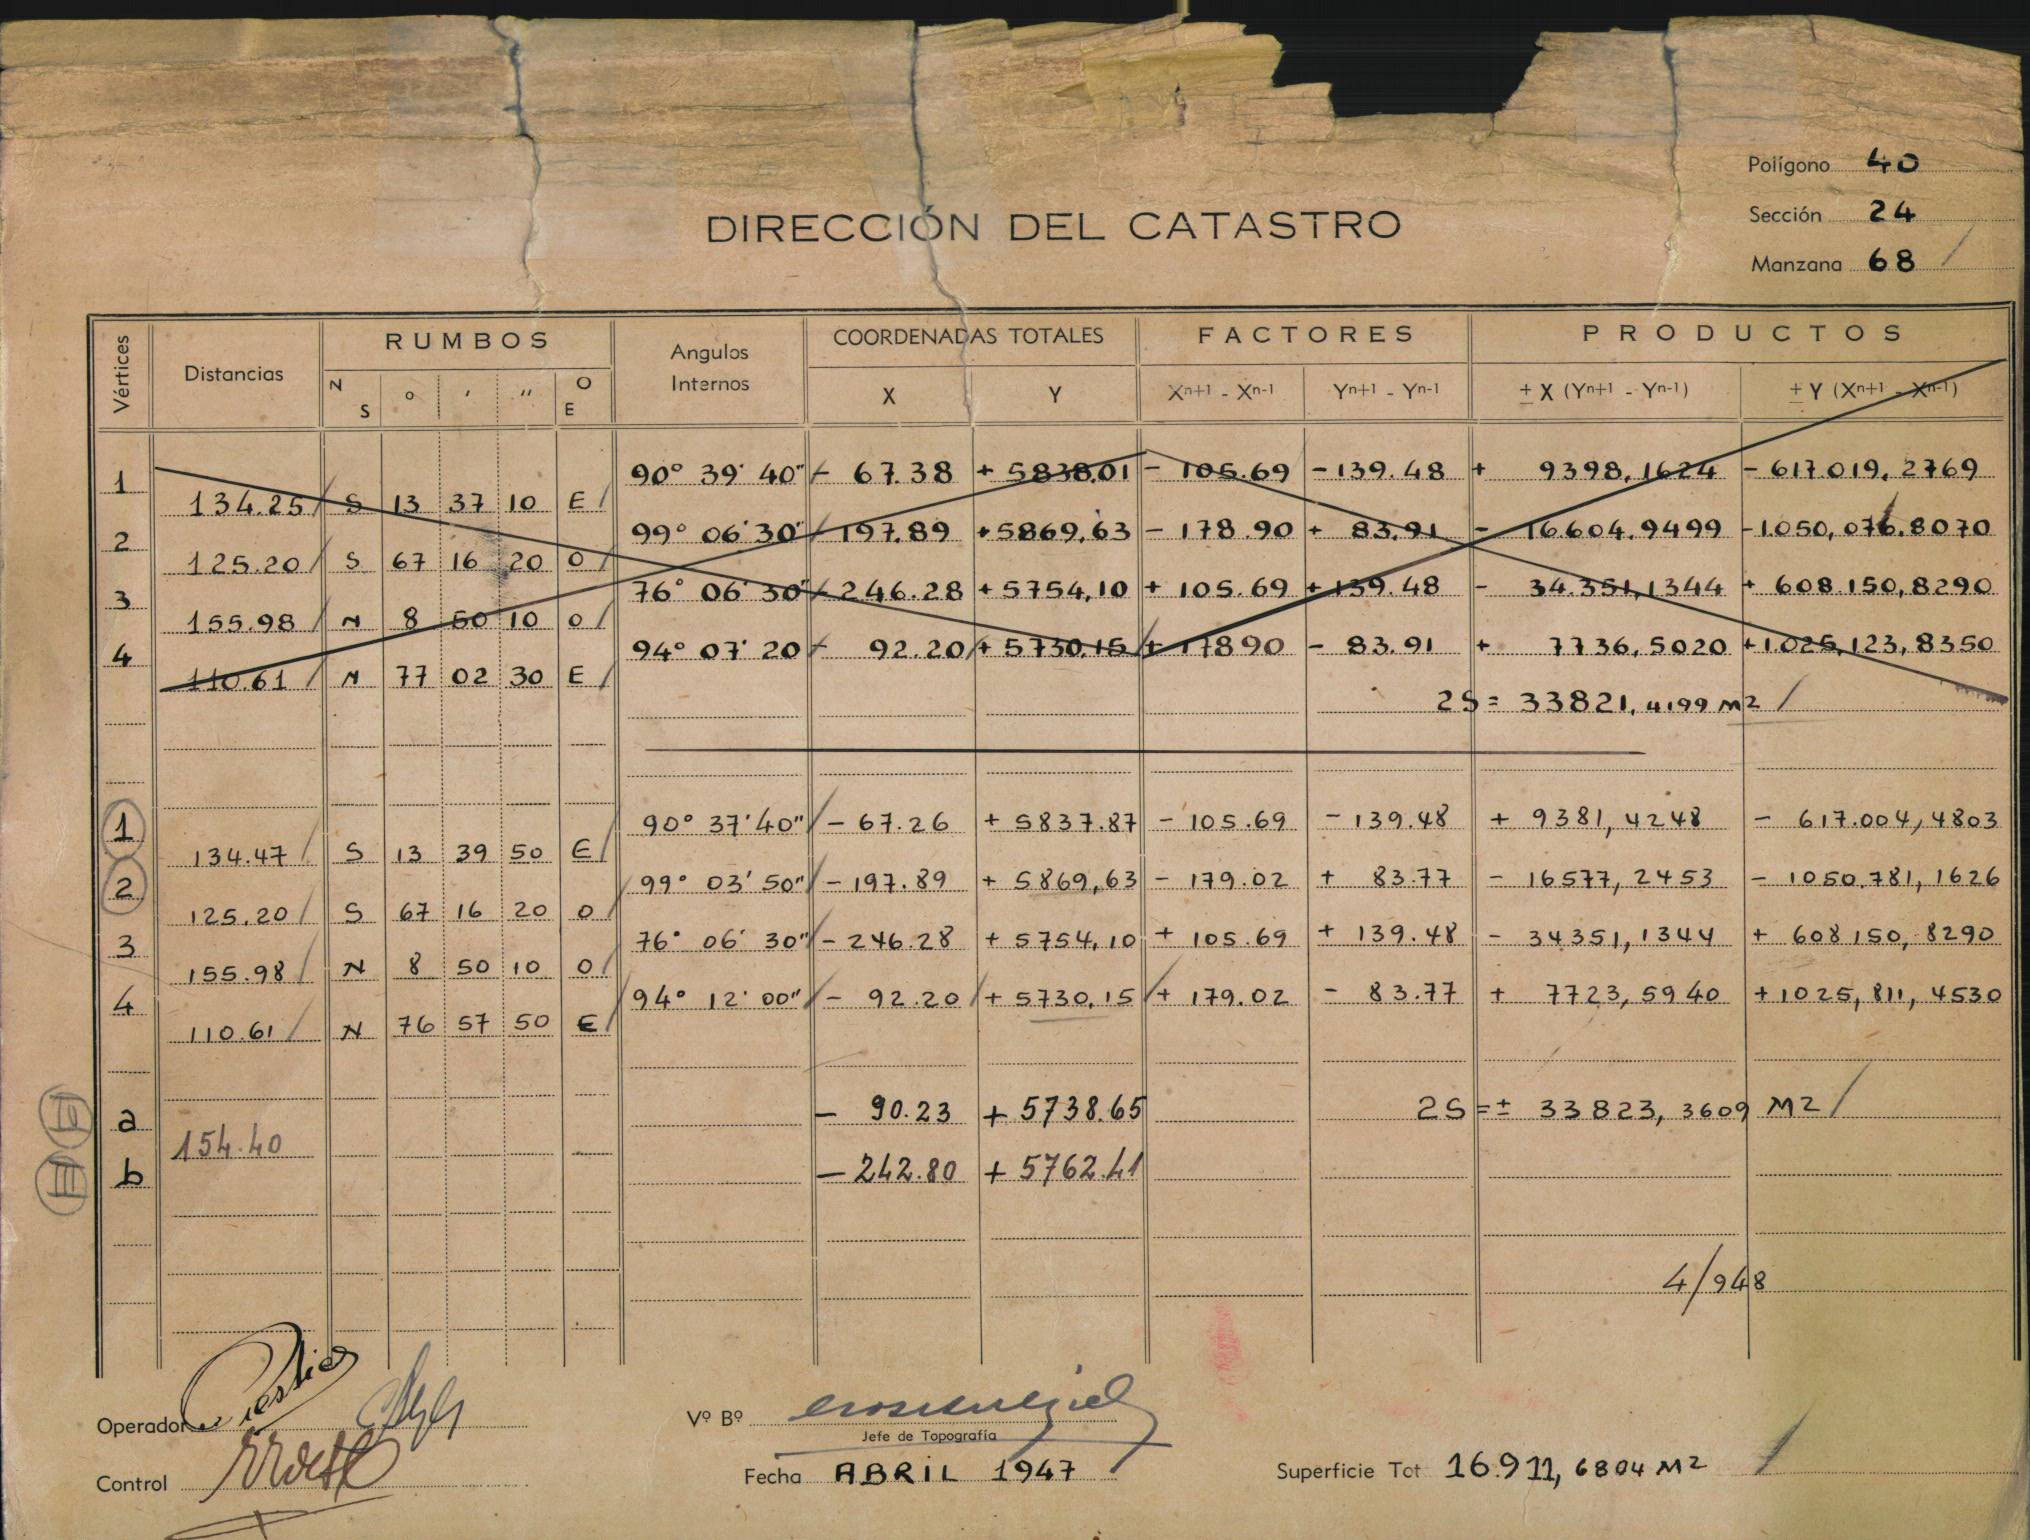 Polígono 40
Sección 24
DIRECCIÓN DEL CATASTRO
Manzana 68
Vértices Distancias RUMBOS Angulos Internos COORDENADAS TOTALES FACTORES PRODUCTOS
N S ° ' '' O E X Y Xn+1 - Xn-1 Yn+1 - Yn-1 ± X (Yn+1 - Yn-1) ± Y (Xn+1 - Xn-1)
1 90° 39' 40" - 67.38 + 5838.01 - 105.69 - 139.48 + 9398,1624 - 617.019,2769
134.25 S 13 37 10 E
2 99° 06' 30" - 197.89 + 5869,63 - 178.90 + 83.91 - 16.604.9499 - 1.050,076.8070
125.20 S 67 16 20 O
3 76° 06' 30" - 246.28 + 5754,10 + 105.69 + 139.48 - 34.351,1344 + 608.150,8290
155.98 N 8 50 10 O
4 94° 07' 20 - 92.20 + 5730,15 + 178 90 - 83.91 + 7736,5020 + 1.025,123,8350
110.61 N 77 02 30 E
2S = 33821,4199 M2
1 90° 37' 40" - 67.26 + 5837.87 - 105.69 - 139.48 + 9381,4248 - 617.004,4803
134.47 S 13 39 50 E
2 99° 03' 50" - 197.89 + 5869,63 - 179.02 + 83.77 - 16577,2453 - 1050.781,1626
125.20 S 67 16 20 O
3 76° 06' 30" - 246.28 + 5754,10 + 105.69 + 139.48 - 34351,1344 + 608 150,8290
155.98 N 8 50 10 O
4 94° 12' 00" - 92.20 + 5730,15 + 179.02 - 83.77 + 7723,5940 + 1025,811,4530
110.61 N 76 57 50 E
III a - 90.23 + 5738.65 2S = ± 33823,3609 M2
154.40
III b - 242.80 + 5762.41
4/948
Operador
Vº Bº
Jefe de Topografía
Control
Fecha ABRIL 1947
Superficie Tot 16.911,6804 M2